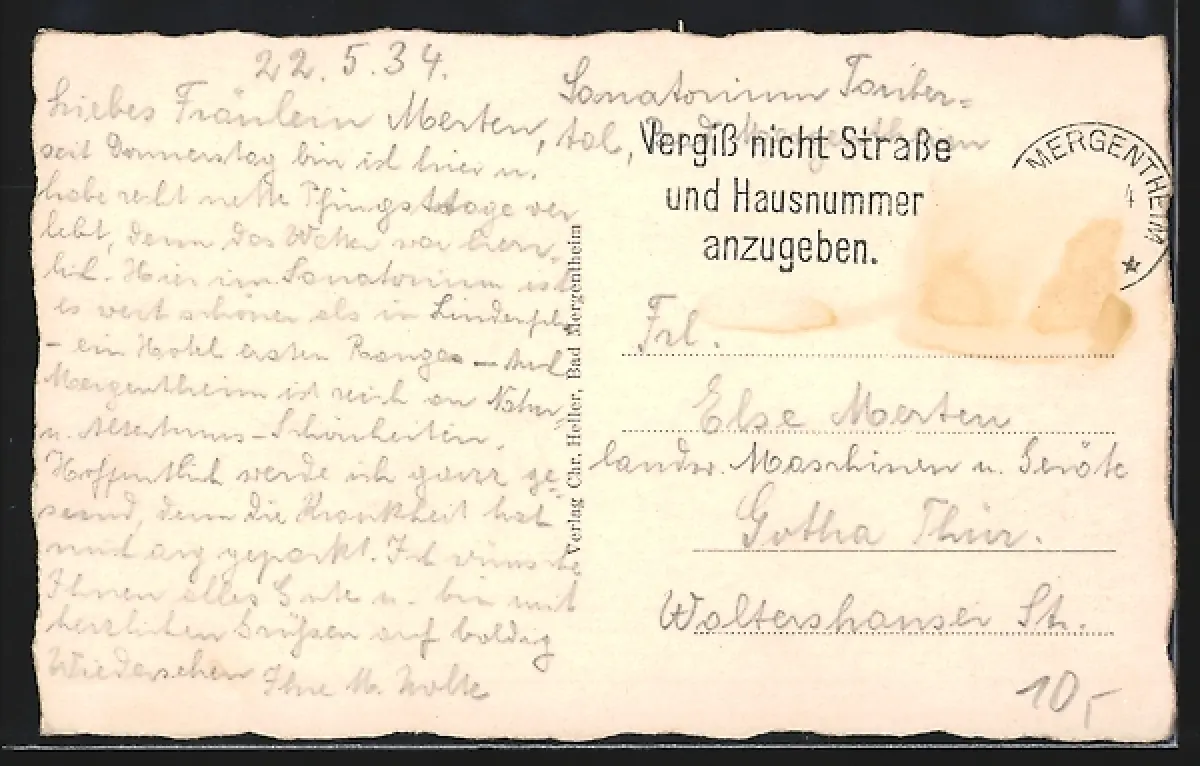 22. 5. 34.
Sanatorium Tauber-
tal, Bad Mergentheim
Liebes Fräulein Merten,
seit Donnerstag bin ich hier u.
habe recht nette Pfingsttage ver-
lebt, denn das Wetter war herr-
lich. Hier im Sanatorium ist
es weit schöner als in Lindenfels
- ein Hotel ersten Ranges -
Mergentheim ist reich an Natur-
u. Altertums-Schönheiten.
Hoffentlich werde ich ganz ge-
sund, denn die Krankheit hat
mich arg gepackt. Ich wünsche
Ihnen alles Gute u. bin mit
herzlichen Grüßen auf baldig
Wiedersehen Ihre M. Nolte
Verlag Chr. Heller, Bad Mergentheim
Vergiß nicht Straße
und Hausnummer
anzugeben.
MERGENTHEIM
4
Frl.
Else Merten
landw. Maschinen u. Geräte
Gotha Thür.
Waltershauser St.
10,-